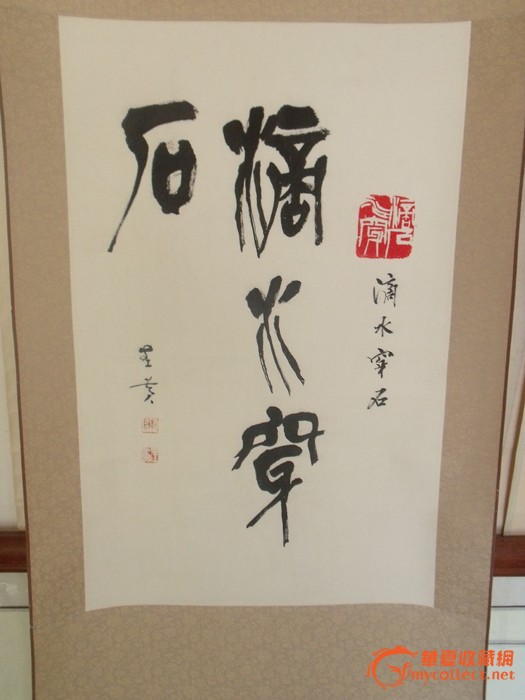 滴水穿石
滴水穿
石
華夏收藏網
mycollect.net